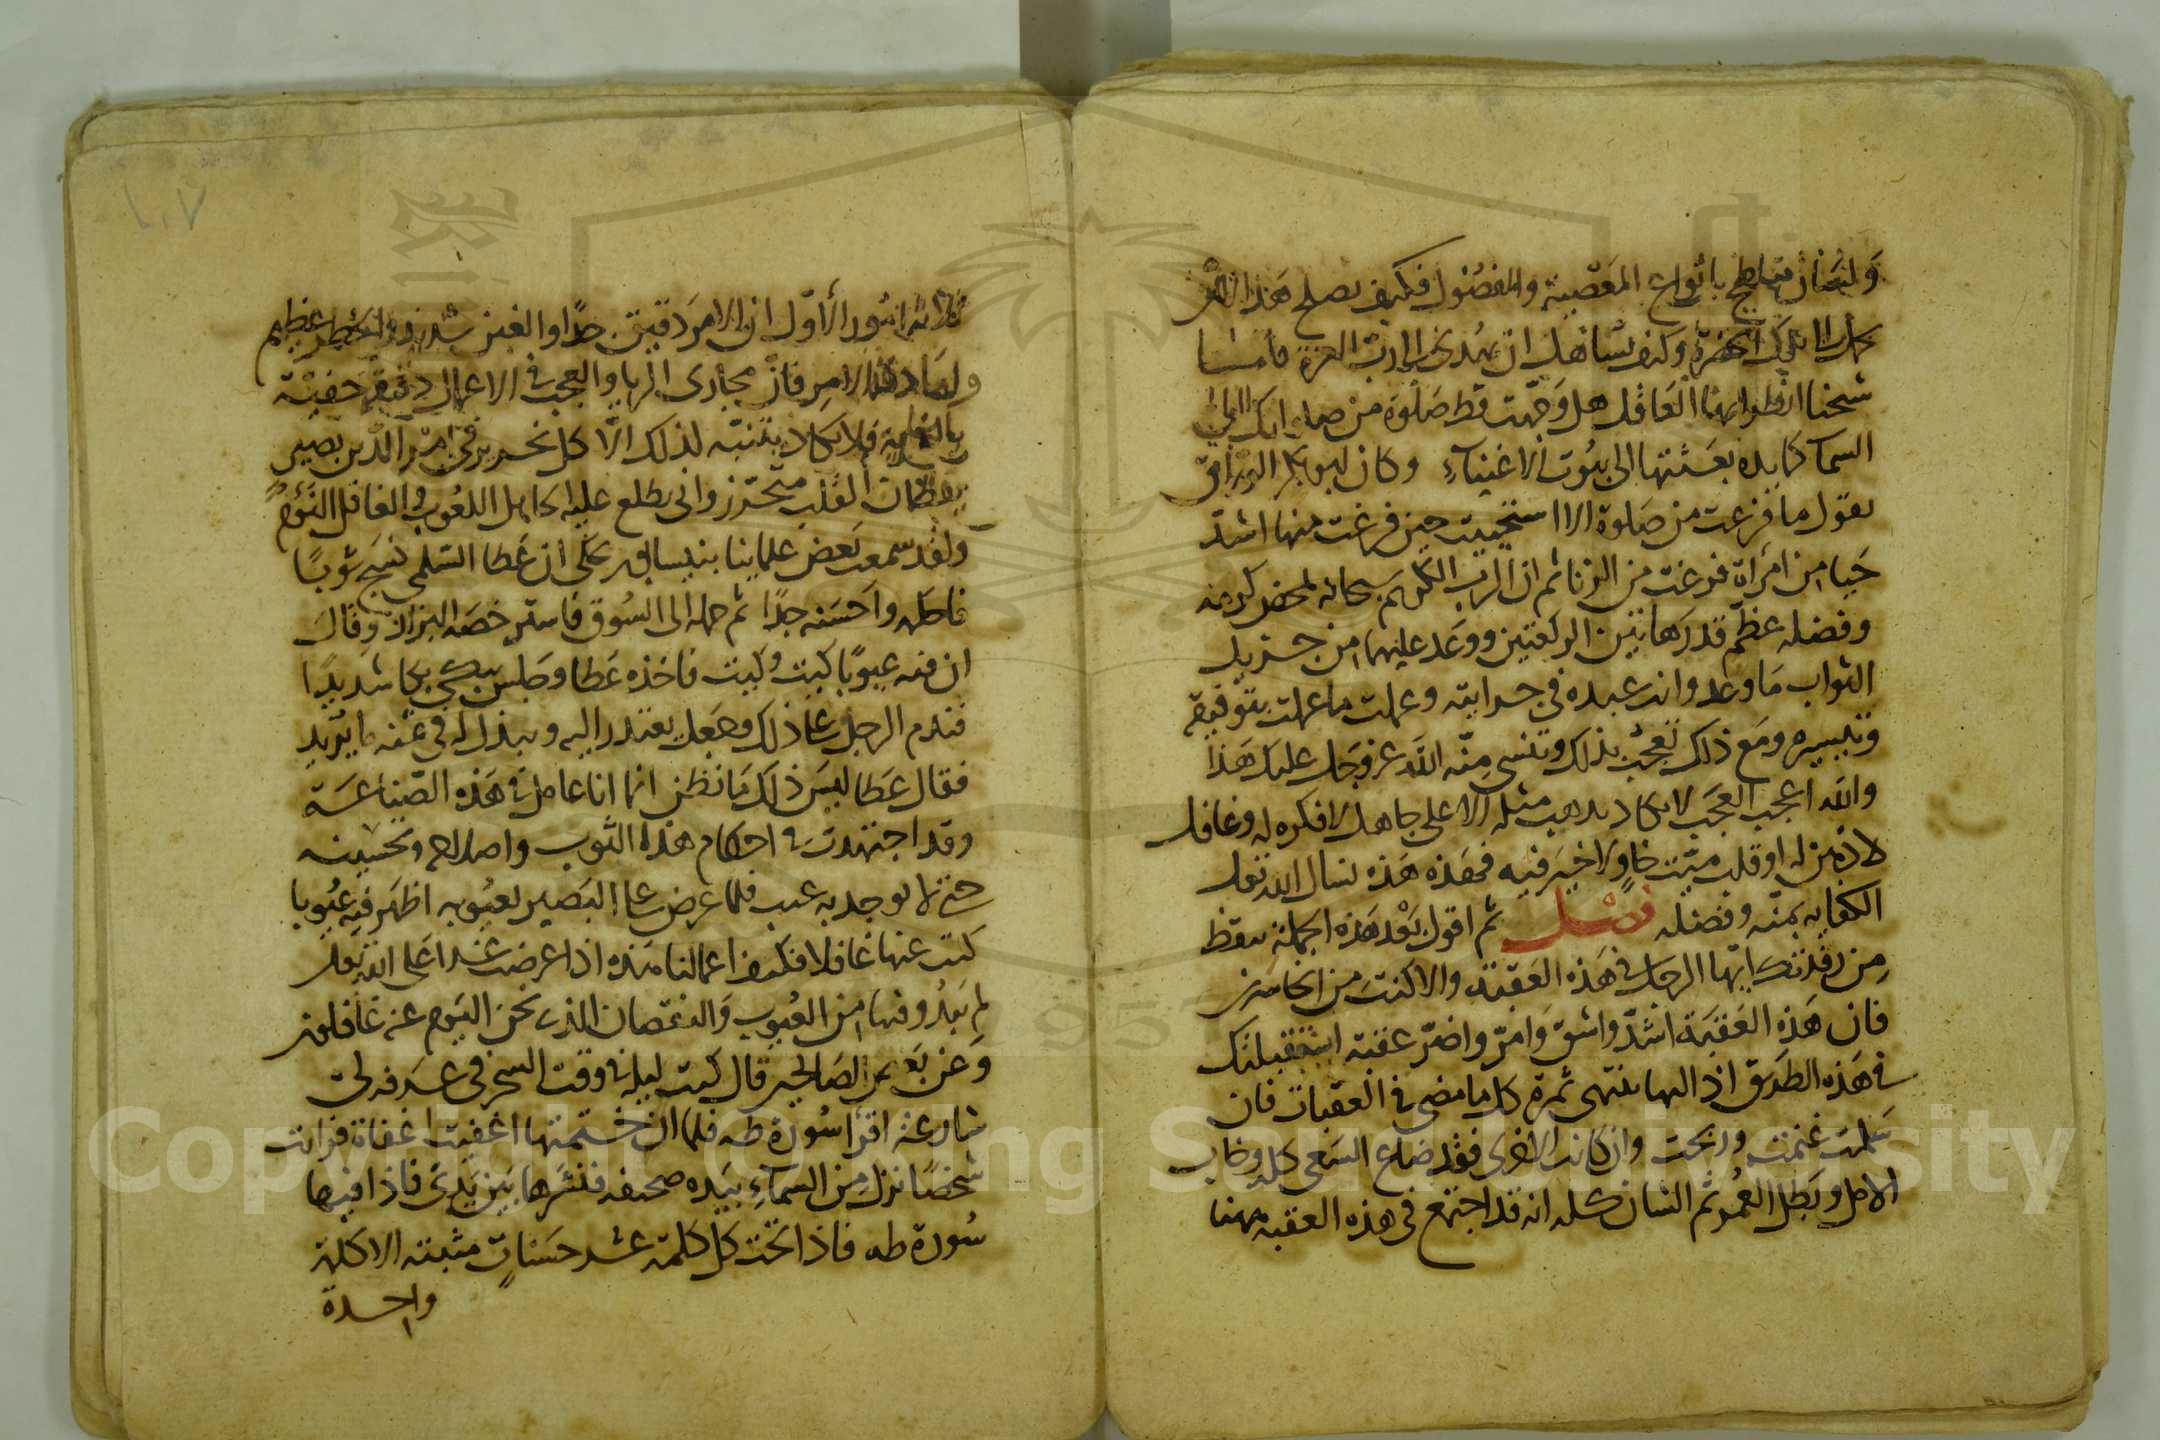 ولسان متلطخ بانواع المعصية والفضول فكيف يصلح هذا ان
يحمل الى تلك الحضرة وكيف يستاهل ان يهدى الى رب العزة قال
شيخنا انظر ايها العاقل هل وجهت قط صلوة من صلواتك الى
السماء كمايده بعثتها الى بيوت الاغنياء وكان ابو بكر الوراق
يقول ما فرغت من صلوة الا استحييت حين فرغت منها اشد
حياء من امرأة فرغت من الزنا ثم ان الرب الكريم سبحانه لمحض كرمه
وفضله عظم قدر هاتين الركعتين ووعد عليهما من جزيل
الثواب ما وعد وانت عبده في جرايته وعملت ما عملت بتوفيقه
وتيسيره ومع ذلك تعجب بذلك وتنسى منة الله عز وجل عليك هذا
والله اعجب العجب لا يكاد يذهب مثله الا على جاهل لا فكرة له وغافل
لا ذهن له او قلب ميت خاو لا خير فيه فهذه هذه نسال الله تعالى
الكفاية بمنه وفضله فصل ثم اقول بعد هذه الجملة تيقظ
من رقدتك ايها الرجل في هذه العقبة والا كنت من الخاسرين
فان هذه العقبة اشد واشق وامر واضر عقبة استقبلتك
في هذه الطريق اذ اليها ينتهى ثمرة كل ما مضى في العقبات فان
سلمت غنمت وربحت وان كانت الاخرى فقد ضاع السعى كله وخاب
الامل وبطل العمر ثم الشان كله انه قد اجتمع في هذه العقبة ههنا
١٠٧
ثلاثة امور الأول ان الامر دقيق جدا والغبن شديد والخطر عظيم
ولما دقة الامر فان مجارى الريا والعجب في الاعمال دقيقة خفية
فلا يكاد يتنبه لذلك الا كل نحرير في امر الدين بصير
يقظان القلب متحرز وانى يطلع عليه الجاهل اللعوب والغافل النؤوم
ولقد سمعت بعض علماينا بنيسابور يحكى ان عطا السلمى نسج ثوبا
فاحكمه واحسنه جدا ثم حمله الى السوق فاسترخصه البزاز وقال
ان فيه عيوبا كيت وكيت فاخذه عطا وجلس يبكى بكا شديدا
فندم الرجل على ذلك وجعل يعتذر اليه ويبذل له في ثمنه ما يريد
فقال عطا ليس ذلك ما تظن انما انا عامل في هذه الصناعة
وقد اجتهدت في احكام هذا الثوب واصلاحه وتحسينه
حتى لا يوجد به عيب فلما عرض على البصير بعيوبه اظهر فيه عيوبا
كنت عنها غافلا فكيف اعمالنا هذه اذا عرضت غدا على الله تعالى
لم يبدو فيها من العيوب والنقصان الذى نحن اليوم عنه غافلون
وعن بعض الصالحين قال كنت ليلة في وقت السحر في غرفة لى
شارعة اقرا سورة طه فلما ان ختمتها اغفيت اغفاة فرأيت
شخصا نزل من السماء بيده صحيفه فنشرها بين يدى فاذا فيها
سورة طه فاذا تحت كل كلمة عشر حسنات مثبتة الا كلمة
واحدة
Copyright © King Saud University
1957